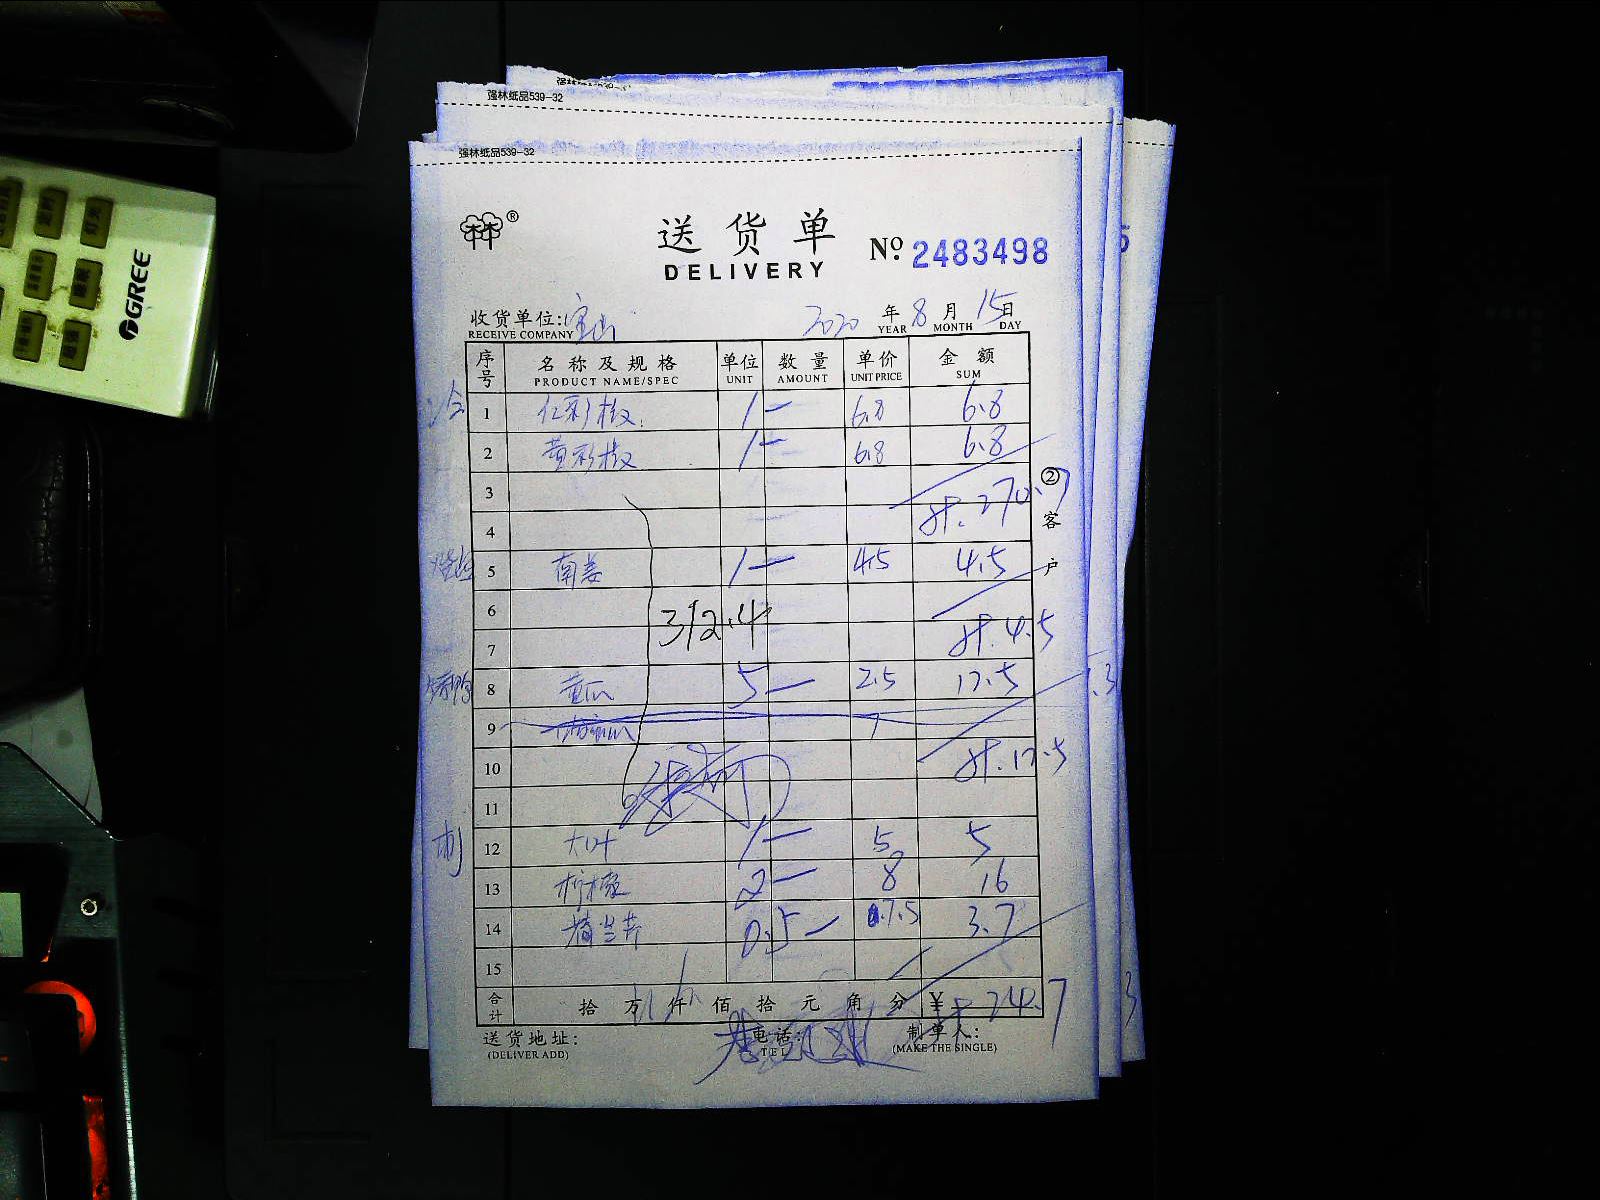 强林纸品539-32
强林纸品539-32
送货单
DELIVERY
№ 2483498
收货单位: 宝山 2020 年 8 月 15 日
RECEIVE COMPANY YEAR MONTH DAY
序号 名称及规格 单位 数量 单价 金额
PRODUCT NAME/SPEC UNIT AMOUNT UNIT PRICE SUM
1 红彩椒 1一 6.8 6.8
2 黄彩椒 1一 6.8 6.8
3
计. 270.7
4
5 南姜 1一 4.5 4.5
6
312.4
7 计. 4.5
8 黄瓜 5一 2.5 17.5
9
10 计. 17.5
11
12 大叶 1一 5 5
13 柠檬 2一 8 16
14 0.5一 7.5 3.7
15
合计 拾 万 仟 佰 拾 元 角 分 ¥
送货地址: 电话: 制单人:
(DELIVER ADD) TEL (MAKE THE SINGLE)
②客户
GREE